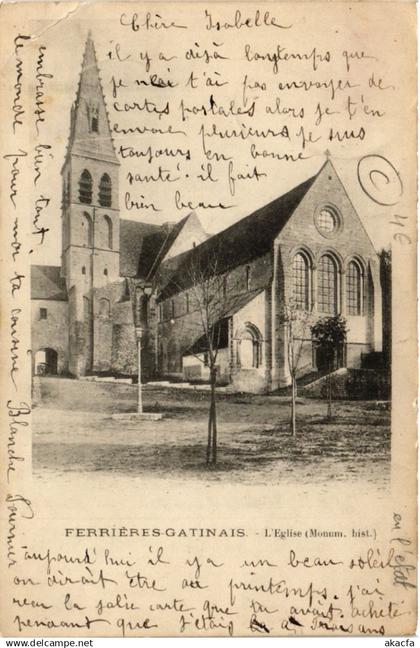 Chère Isabelle
il y a déjà longtemps que
je n'ai t'ai pas envoyer de
cartes postales alors je t'en
envoie plusieurs je suis
toujours en bonne
santé. il fait
bien beau
embrasse bien tout
le monde pour moi ta cousine
Blanche
© 4E
en l'état
FERRIÈRES-GATINAIS. - L'Eglise (Monum. hist.)
aujourd'hui il y a un beau soleil
on dirait être au printemps. j'ai
reçu la jolie carte que tu avait acheté
pendant que j'étais à
www.akafca.com